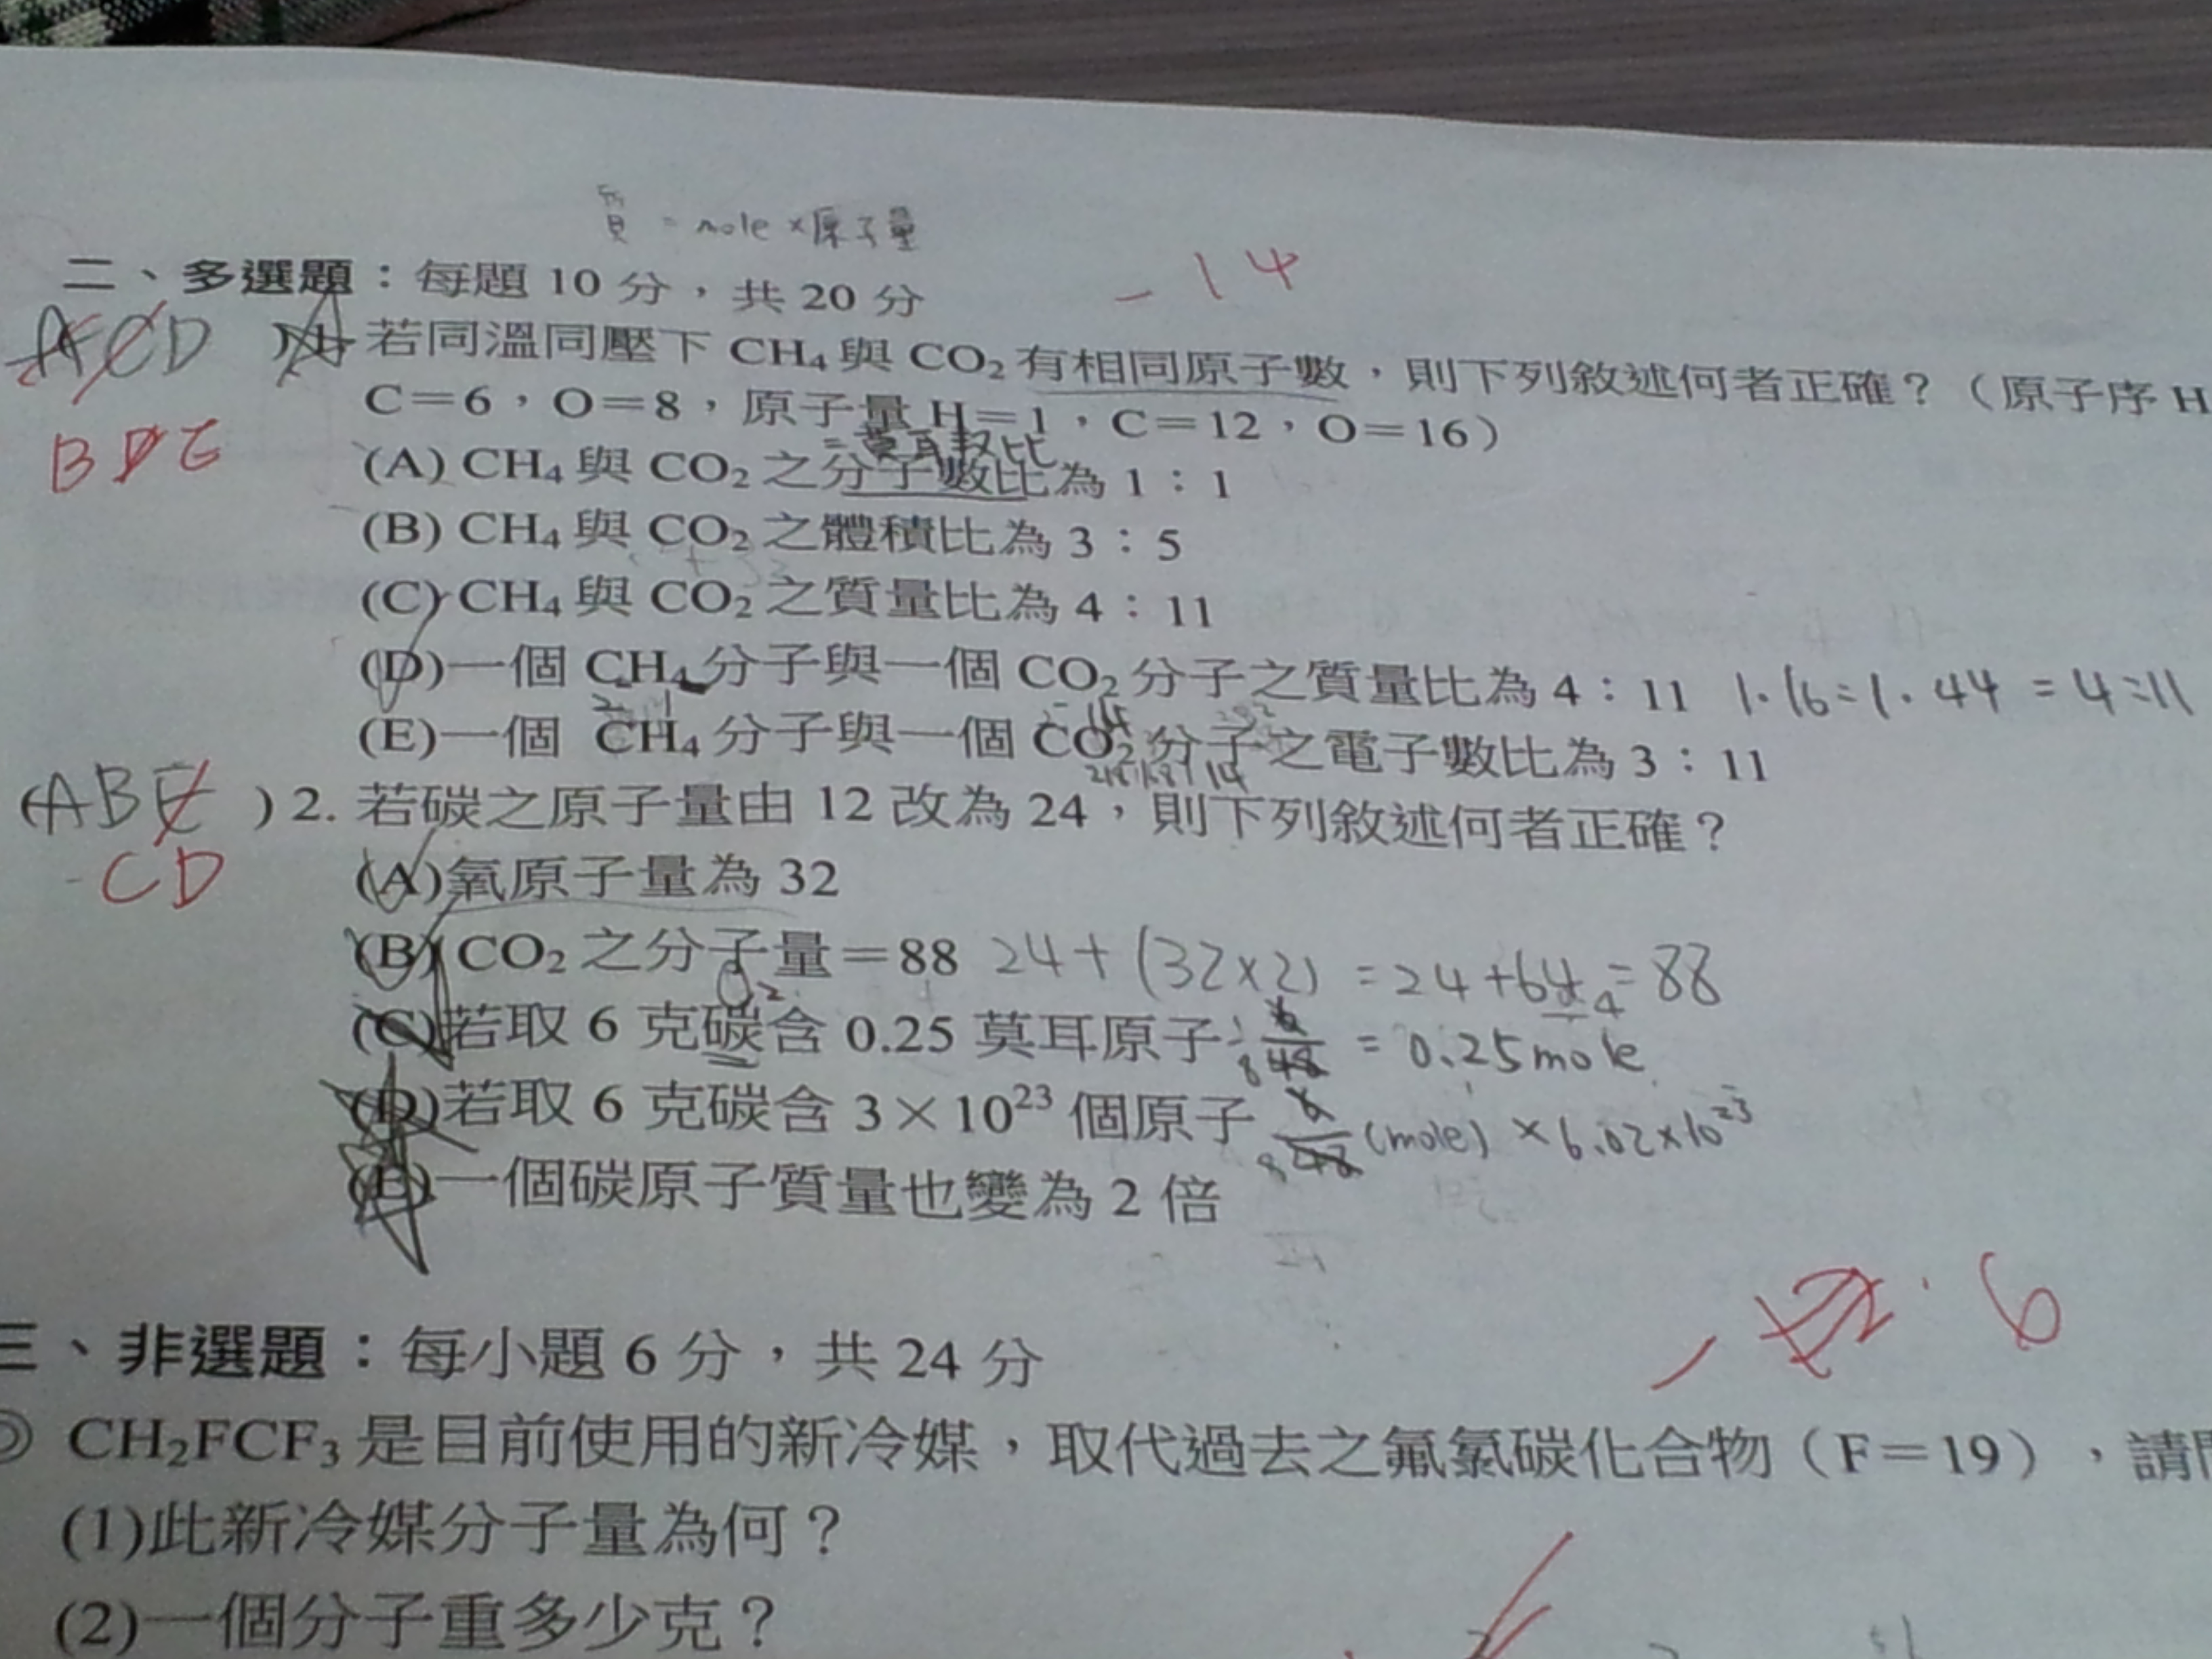 質 = mole × 原子量
二、多選題：每題 10 分，共 20 分
-14
ACD
BDE
1. 若同溫同壓下 CH₄ 與 CO₂ 有相同原子數，則下列敘述何者正確？（原子序 H
C＝6，O＝8，原子量 H＝1，C＝12，O＝16）
=莫耳數比
(A) CH₄ 與 CO₂ 之分子數比為 1：1
(B) CH₄ 與 CO₂ 之體積比為 3：5
(C) CH₄ 與 CO₂ 之質量比為 4：11
(D)一個 CH₄ 分子與一個 CO₂ 分子之質量比為 4：11 1·16=1·44 = 4:11
(E)一個 CH₄ 分子與一個 CO₂ 分子之電子數比為 3：11
(ABE ) 2. 若碳之原子量由 12 改為 24，則下列敘述何者正確？
CD
(A)氧原子量為 32
(B) CO₂ 之分子量＝88 24+(32×2) = 24+64 = 88
O₂
(C)若取 6 克碳含 0.25 莫耳原子 = 0.25 mole
(D)若取 6 克碳含 3×10²³ 個原子 (mole) × 6.02×10²³
(E)一個碳原子質量也變為 2 倍
6
三、非選題：每小題 6 分，共 24 分
◎ CH₂FCF₃ 是目前使用的新冷媒，取代過去之氟氯碳化合物（F＝19），請問
(1)此新冷媒分子量為何？
(2)一個分子重多少克？